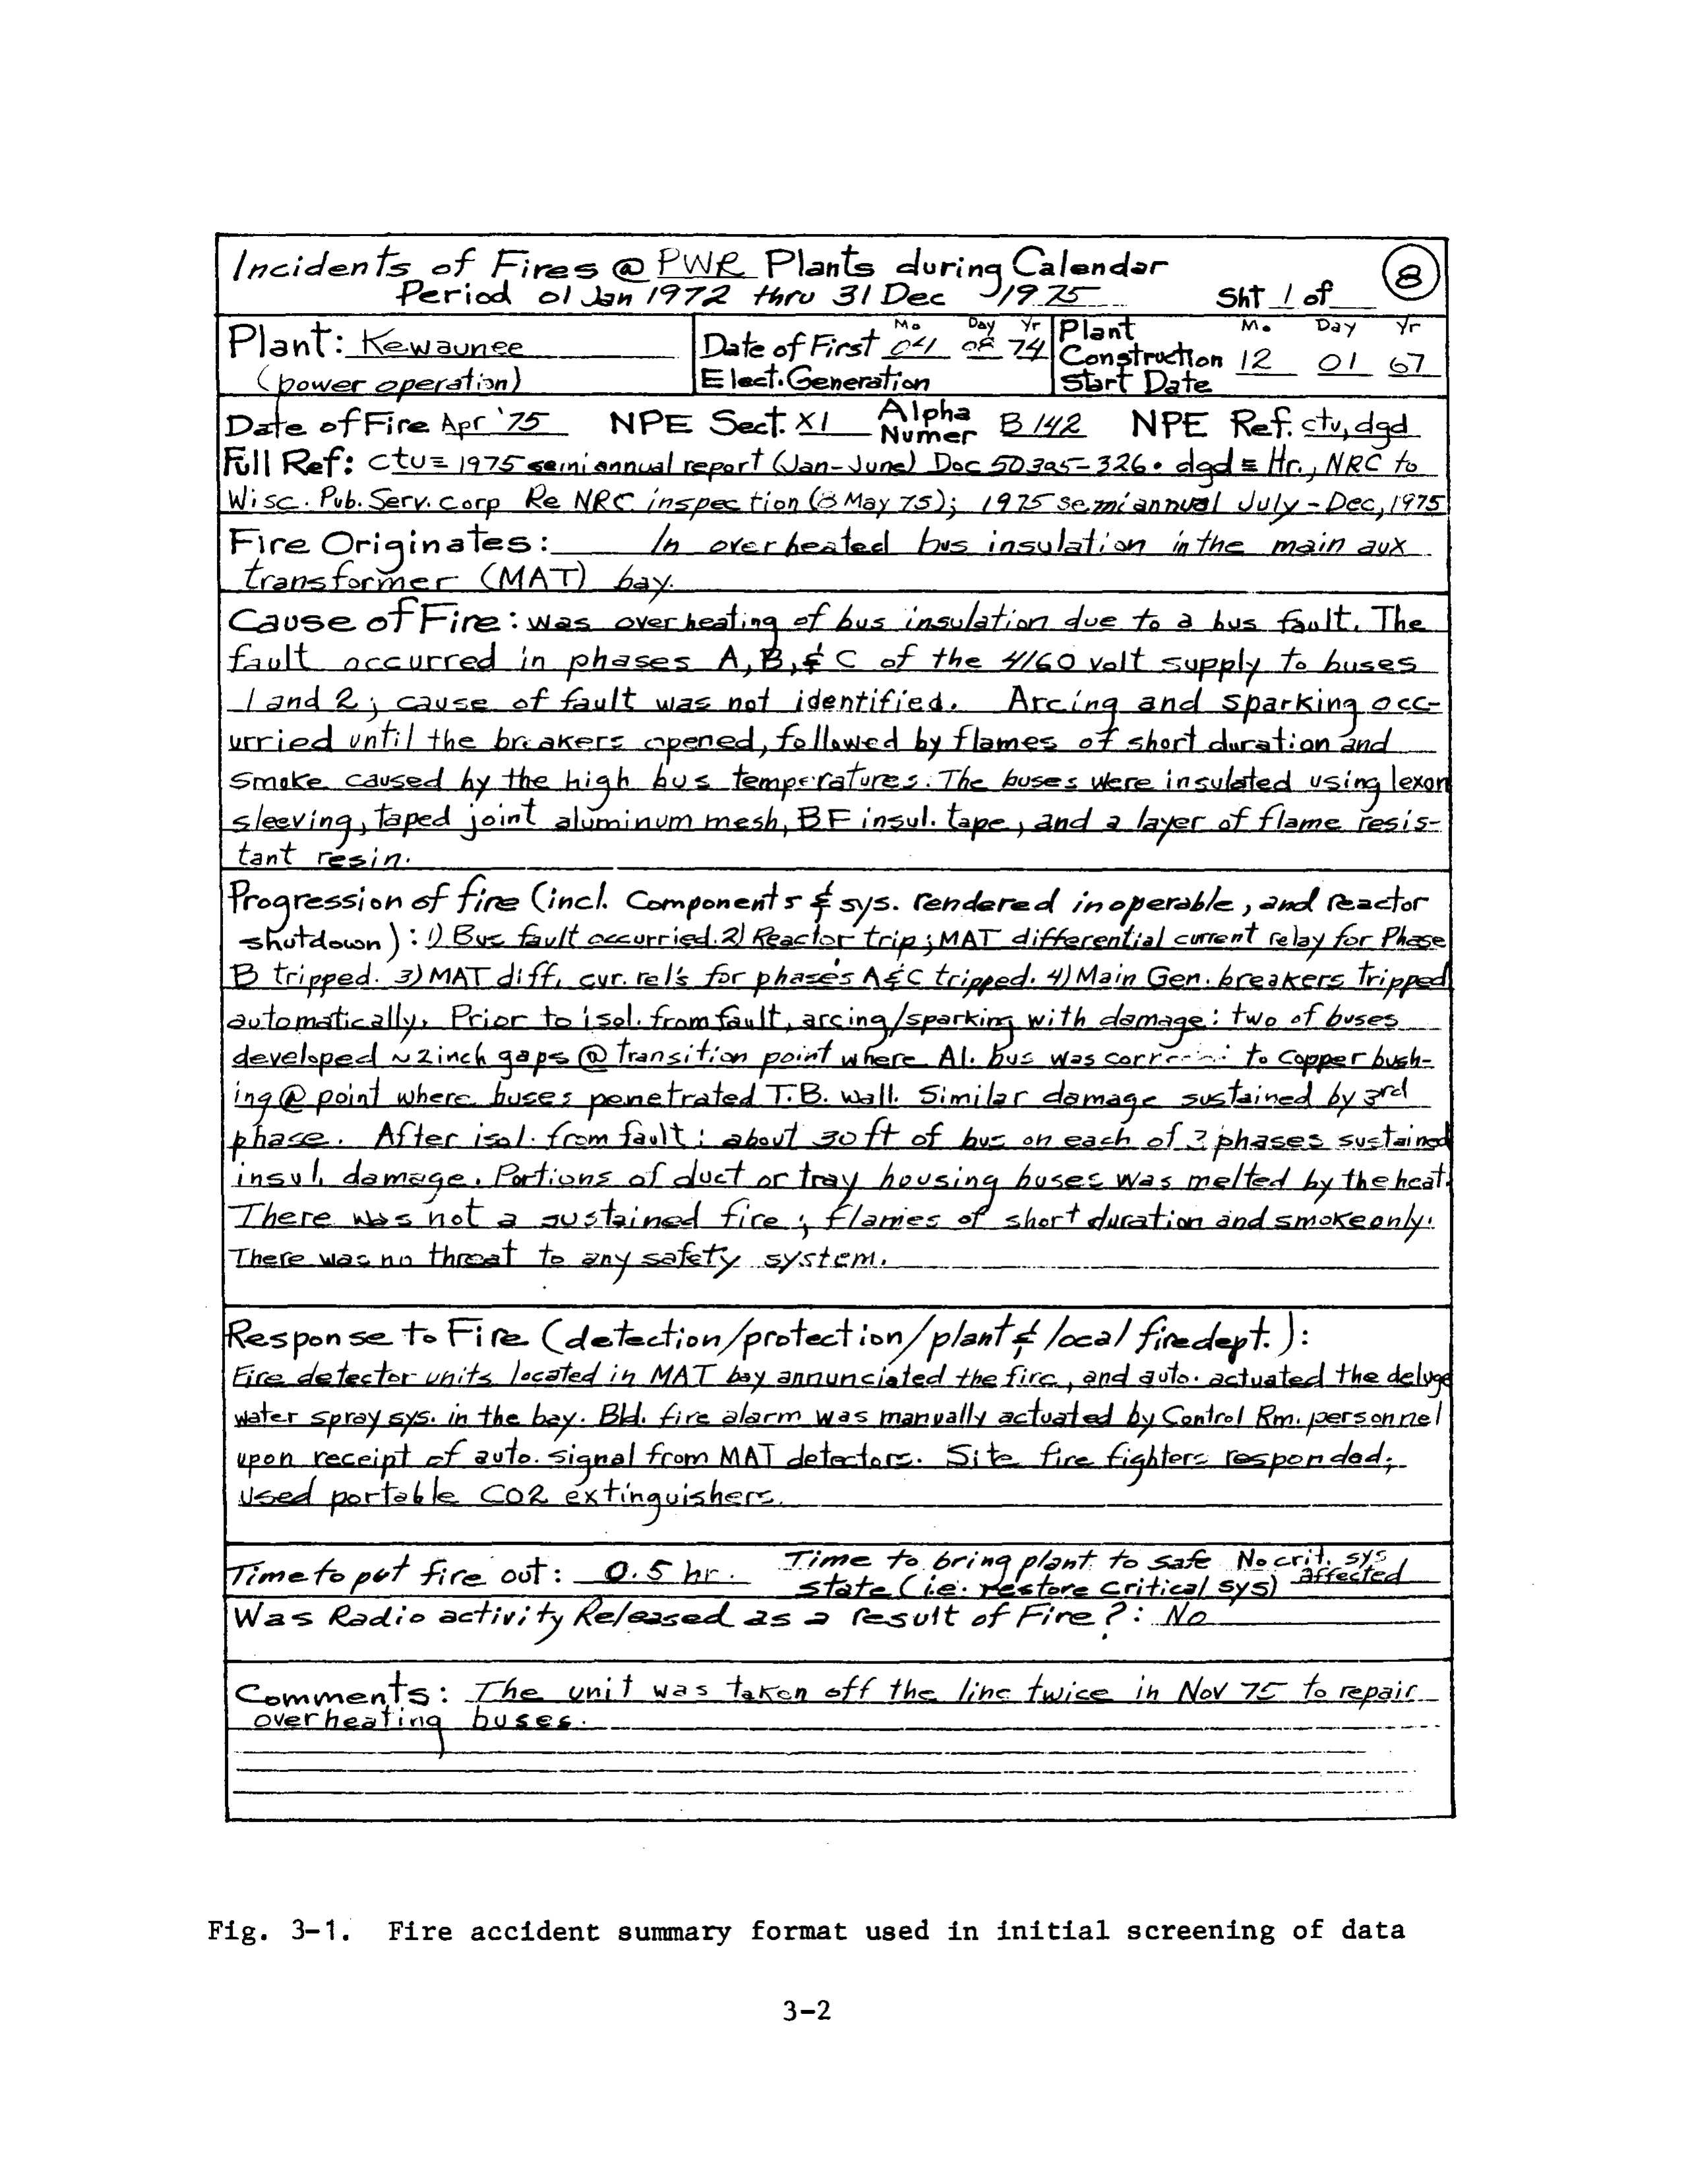 Incidents of Fires @ PWR Plants during Calendar
Period 01 Jan 1972 thru 31 Dec 1975 Sht 1 of
8
Plant: Kewaunee
(power operation)
Date of First Mo 04 Day 08 Yr 74
Elect. Generation
Plant Mo. Day Yr
Construction 12 01 67
Start Date
Date of Fire Apr '75 NPE Sect. XI Alpha Numer B 142 NPE Ref. ctv, dgd
Full Ref: ctv ≡ 1975 semiannual report (Jan-June) Doc 50305-326. dgd ≡ ltr., NRC to
Wisc. Pub. Serv. Corp Re NRC inspection (8 May 75); 1975 semiannual July-Dec, 1975
Fire Originates: In overheated bus insulation in the main aux
transformer (MAT) bay.
Cause of Fire: was overheating of bus insulation due to a bus fault. The
fault occurred in phases A, B, & C of the 4160 volt supply to buses
1 and 2; cause of fault was not identified. Arcing and sparking occ-
urried until the breakers opened, followed by flames of short duration and
smoke caused by the high bus temperatures. The buses were insulated using lexon
sleeving, taped joint aluminum mesh, BF insul. tape, and a layer of flame resis-
tant resin.
Progression of fire (incl. Components & sys. rendered inoperable, and reactor
shutdown): 1) Bus fault occurried. 2) Reactor trip; MAT differential current relay for Phase
B tripped. 3) MAT diff. cur. rel's for phases A & C tripped. 4) Main Gen. breakers tripped
automatically. Prior to isol. from fault, arcing/sparking with damage: two of buses
developed ~2 inch gaps @ transition point where Al. bus was to copper bush-
ing @ point where buses penetrated T.B. wall. Similar damage sustained by 3rd
phase. After isol. from fault: about 30 ft of bus on each of 3 phases sustained
insul. damage. Portions of duct or tray housing buses was melted by the heat.
There was not a sustained fire; flames of short duration and smoke only.
There was no threat to any safety system.
Response to Fire (detection/protection/plant & local fire dept.):
Fire detector units located in MAT bay annunciated the fire, and auto. actuated the deluge
water spray sys. in the bay. Bld. fire alarm was manually actuated by Control Rm. personnel
upon receipt of auto. signal from MAT detectors. Site fire fighters responded;
used portable CO2 extinguishers.
Time to put fire out: 0.5 hr. Time to bring plant to safe state (i.e. restore critical sys) No crit. sys affected
Was Radio activity Released as a result of Fire?: No
Comments: The unit was taken off the line twice in Nov 75 to repair
overheating buses.
Fig. 3-1. Fire accident summary format used in initial screening of data
3-2